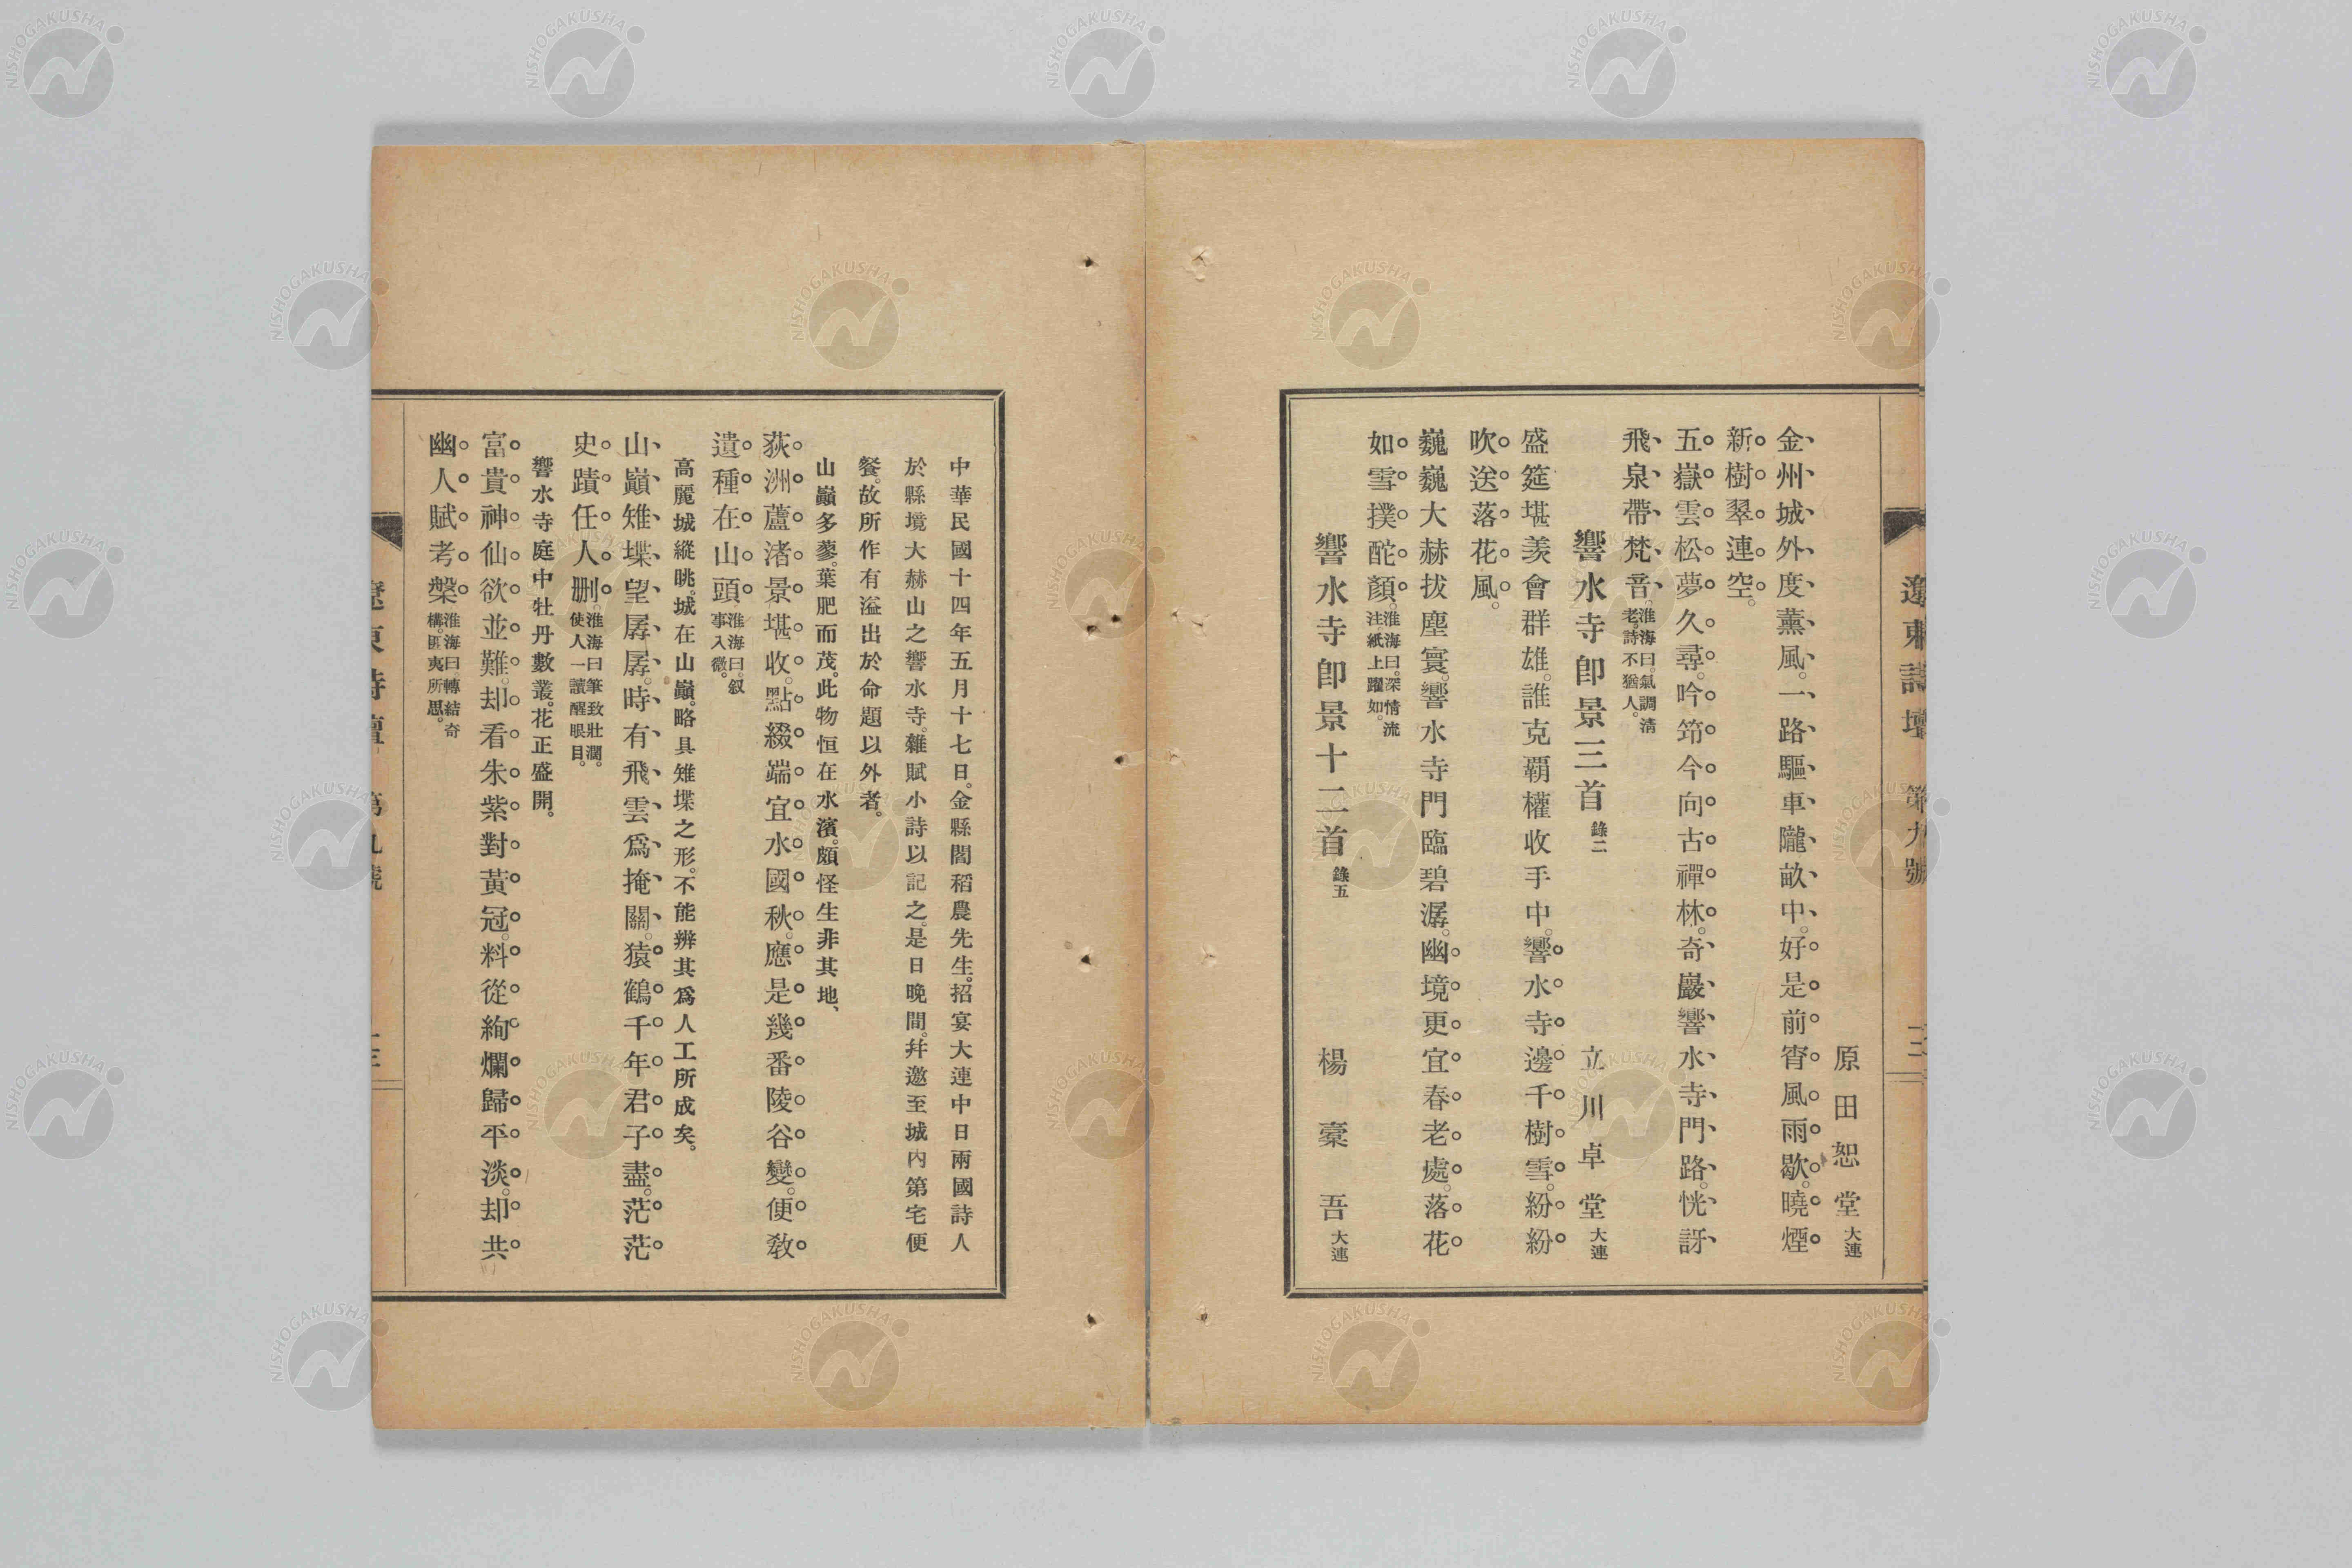 遼東詩壇 第九號
原田恕堂 大連
金州城外度薰風。一路驅車隴畝中。好是前宵風雨歇。曉煙
新樹翠連空。
五嶽雲松夢久尋。吟筇今向古禪林。奇巖響水寺門路。恍訝
飛泉帶梵音。淮海曰。氣調清老。詩不猶人。
響水寺卽景三首 錄二 立川卓堂 大連
盛筵堪羨會群雄。誰克覇權收手中。響水寺邊千樹雪。紛紛
吹送落花風。
巍巍大赫拔塵寰。響水寺門臨碧潺。幽境更宜春老處。落花
如雪撲酡顏。淮海曰。深情流注。紙上躍如。
響水寺卽景十二首 錄五 楊槖吾 大連
中華民國十四年五月十七日。金縣閻稻農先生。招宴大連中日兩國詩人
於縣境大赫山之響水寺。雜賦小詩以記之。是日晚間。幷邀至城內第宅便
餐。故所作有溢出於命題以外者。
山巓多蓼。葉肥而茂。此物恒在水濱。頗怪生非其地、
荻洲蘆渚景堪收。點綴端宜水國秋。應是幾番陵谷變。便敎
遺種在山頭。淮海曰。叙事入微。
高麗城縱眺。城在山巓。略具雉堞之形。不能辨其爲人工所成矣。
山巓雉堞望孱孱。時有飛雲爲掩關。猿鶴千年君子盡。茫茫
史蹟任人删。淮海曰筆致壯濶。使人一讀醒眼目。
響水寺庭中牡丹數叢。花正盛開。
富貴神仙欲並難。却看朱紫對黃冠。料從絢爛歸平淡。却共
幽人賦考槃。淮海曰。轉結奇構。匪夷所思。
遼東詩壇 第九號